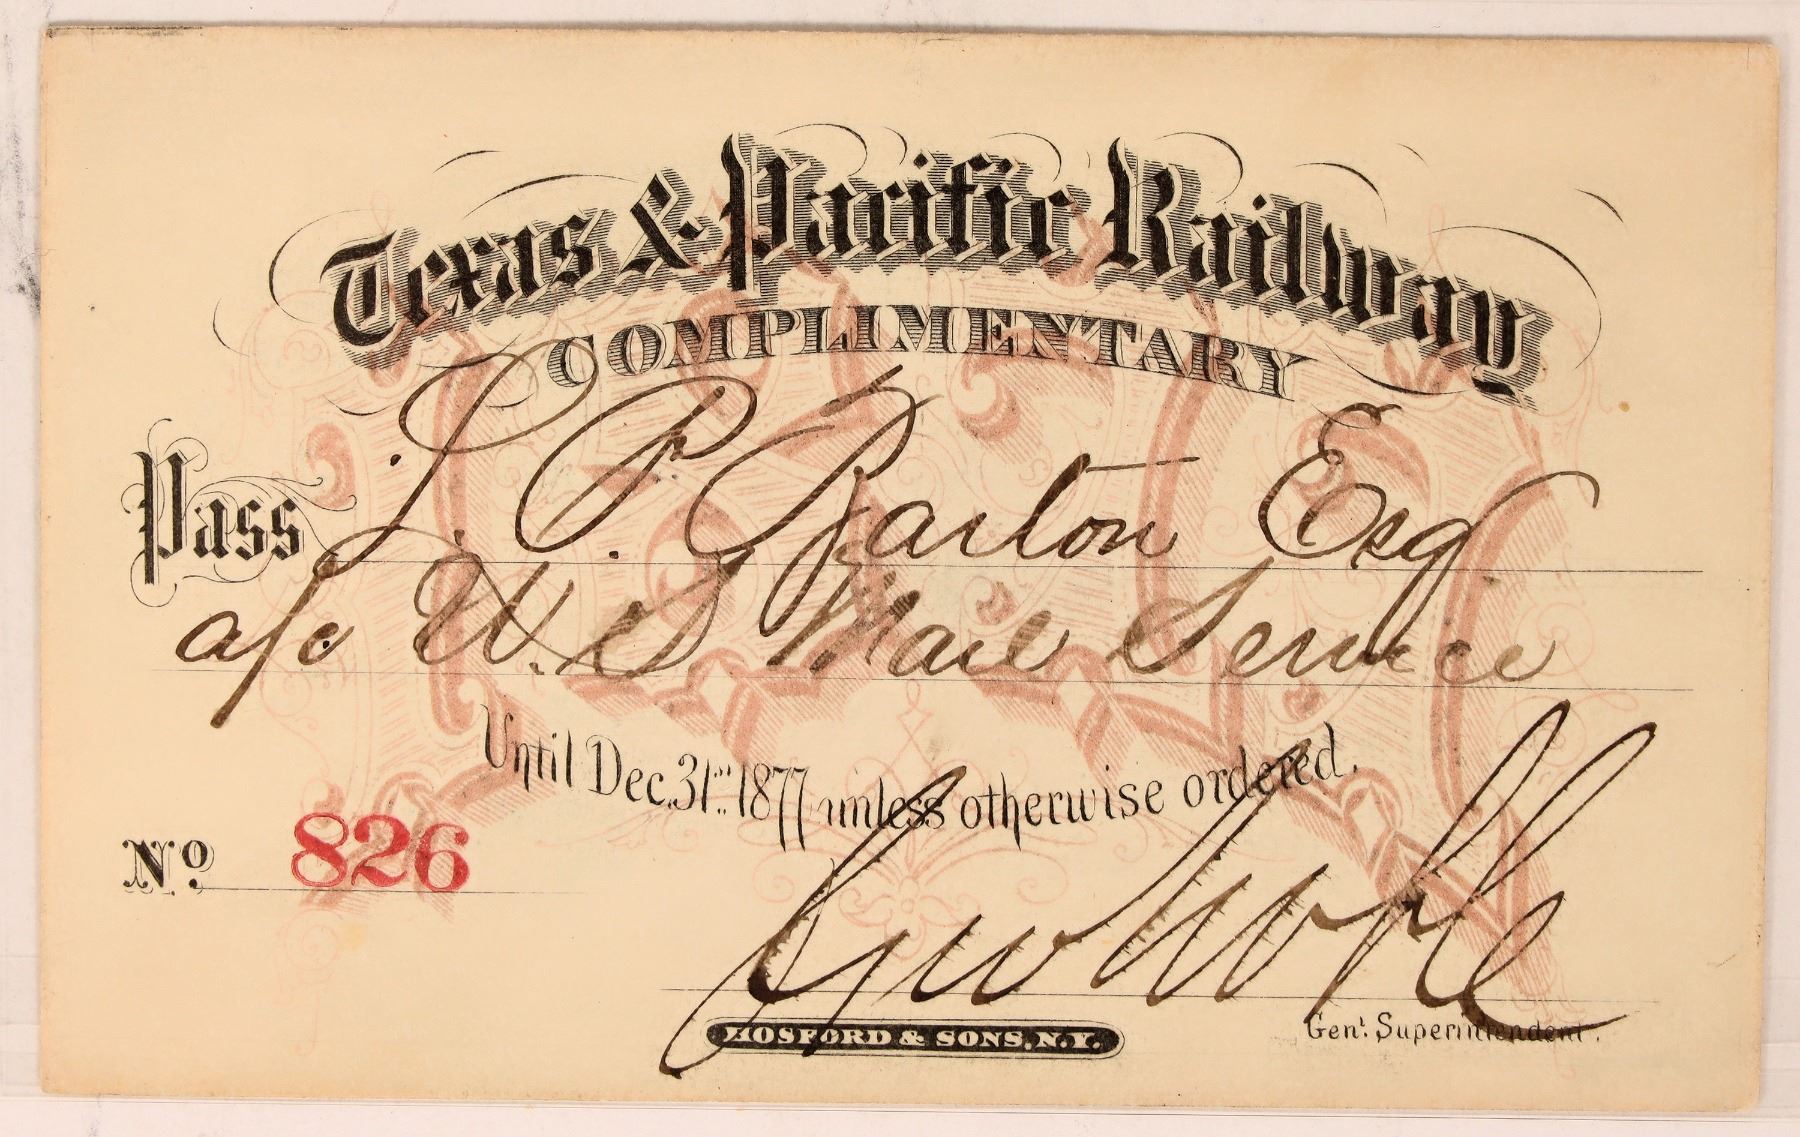 Texas & Pacific Railway
COMPLIMENTARY
Pass J. P. Barton Esq
a/c U. S. Mail Service
Until Dec. 31st 1877 unless otherwise ordered.
No. 826
Geo Noble
HOSFORD & SONS, N.Y.
Genl. Superintendent.